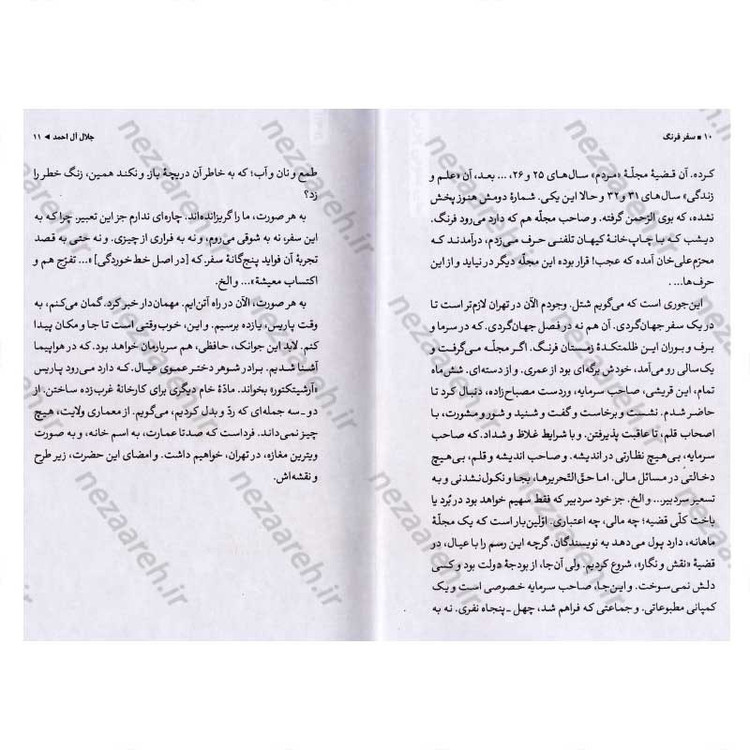 ۱۰ ■ سفر فرنگ
کرده. آن قضیهٔ مجلّهٔ «مردم» سال‌های ۲۵ و ۲۶، ... بعد، آن «علم و
زندگی» سال‌های ۳۱ و ۳۲ و حالا این یکی. شمارهٔ دومش هنوز پخش
نشده، که بوی الرّحمن گرفته. و صاحب مجلّه هم که دارد می‌رود فرنگ.
دیشب که با چاپ‌خانهٔ کیهان تلفنی حرف می‌زدم، درآمدند که
محرّم‌علی‌خان آمده که عجب! قرار بوده این مجلّه دیگر در نیاید و از این
حرف‌ها... .
این‌جوری است که می‌گویم شتل. وجودم الآن در تهران لازم‌تر است تا
در یک سفر جهان‌گردی. آن هم نه در فصل جهان‌گردی. که در سرما و
برف و بوران این ظلمتکدهٔ زمستان فرنگ. اگر مجلّه می‌گرفت و
یک‌سالی رو می‌آمد، خودش برگه‌ای بود از عمری. و از دسته‌ای. شش‌ماه
تمام، این قریشی، صاحب سرمایه، وردست مصباح‌زاده، دنبال کرد تا
حاضر شدم. نشست و برخاست و گفت و شنید و شور و مشورت، با
اصحاب قلم، تا عاقبت پذیرفتن. و با شرایط غلاظ و شداد. که صاحب
سرمایه، بی‌هیچ نظارتی در اندیشه. و صاحب اندیشه و قلم، بی‌هیچ
دخالتی در مسائل مالی. اما حق‌التّحریرها، بجا و نکول‌نشدنی و به
تسعیر سردبیر... و الخ. جز خود سردبیر که فقط سهیم خواهد بود در بُرد یا
باخت کلّی قضیه؛ چه مالی، چه اعتباری. اوّلین‌بار است که یک مجلّهٔ
ماهانه، دارد پول می‌دهد به نویسندگان. گرچه این رسم را با عیال، در
قضیهٔ «نقش و نگار»، شروع کردیم. ولی آن‌جا، از بودجهٔ دولت بود و کسی
دلش نمی‌سوخت. و این‌جا، صاحب سرمایه خصوصی است و یک
کمپانی مطبوعاتی. و جماعتی که فراهم شد، چهل ـ پنجاه نفری. نه به
جلال آل احمد ◄ ۱۱
طمع و نان و آب؛ که به خاطر آن دریچهٔ باز. و نکند همین، زنگ خطر را
زد؟
به هر صورت، ما را گریزانده‌اند. چاره‌ای ندارم جز این تعبیر. چرا که به
این سفر، نه به شوقی می‌روم، و نه به فراری از چیزی. و نه حتی به قصد
تجربهٔ آن فواید پنج‌گانهٔ سفر که [در اصل خط‌خوردگی] «... تفرّج هم و
اکتساب معیشة»... و الخ.
به هر صورت، الآن در راه آتن‌ایم. مهمان‌دار خبر کرد. گمان می‌کنم، به
وقت پاریس، یازده برسیم. و این، خوب‌وقتی است تا جا و مکان پیدا
کنم. لابد این جوانک، حافظی، هم سربارمان خواهد بود. که در هواپیما
آشنا شدیم. برادر شوهر دختر عموی عیال. که دارد می‌رود پاریس
«آرشیتکتور» بخواند. مادّهٔ خام دیگری برای کارخانهٔ غرب‌زده ساختن. از
دو ـ سه جمله‌ای که ردّ و بدل کردیم، می‌گویم. از معماری ولایت، هیچ
چیز نمی‌داند. فرداست که صدتا عمارت، به اسم خانه، و به صورت
ویترین مغازه، در تهران، خواهیم داشت. و امضای این حضرت، زیر طرح
و نقشه‌اش.
nezaareh.ir